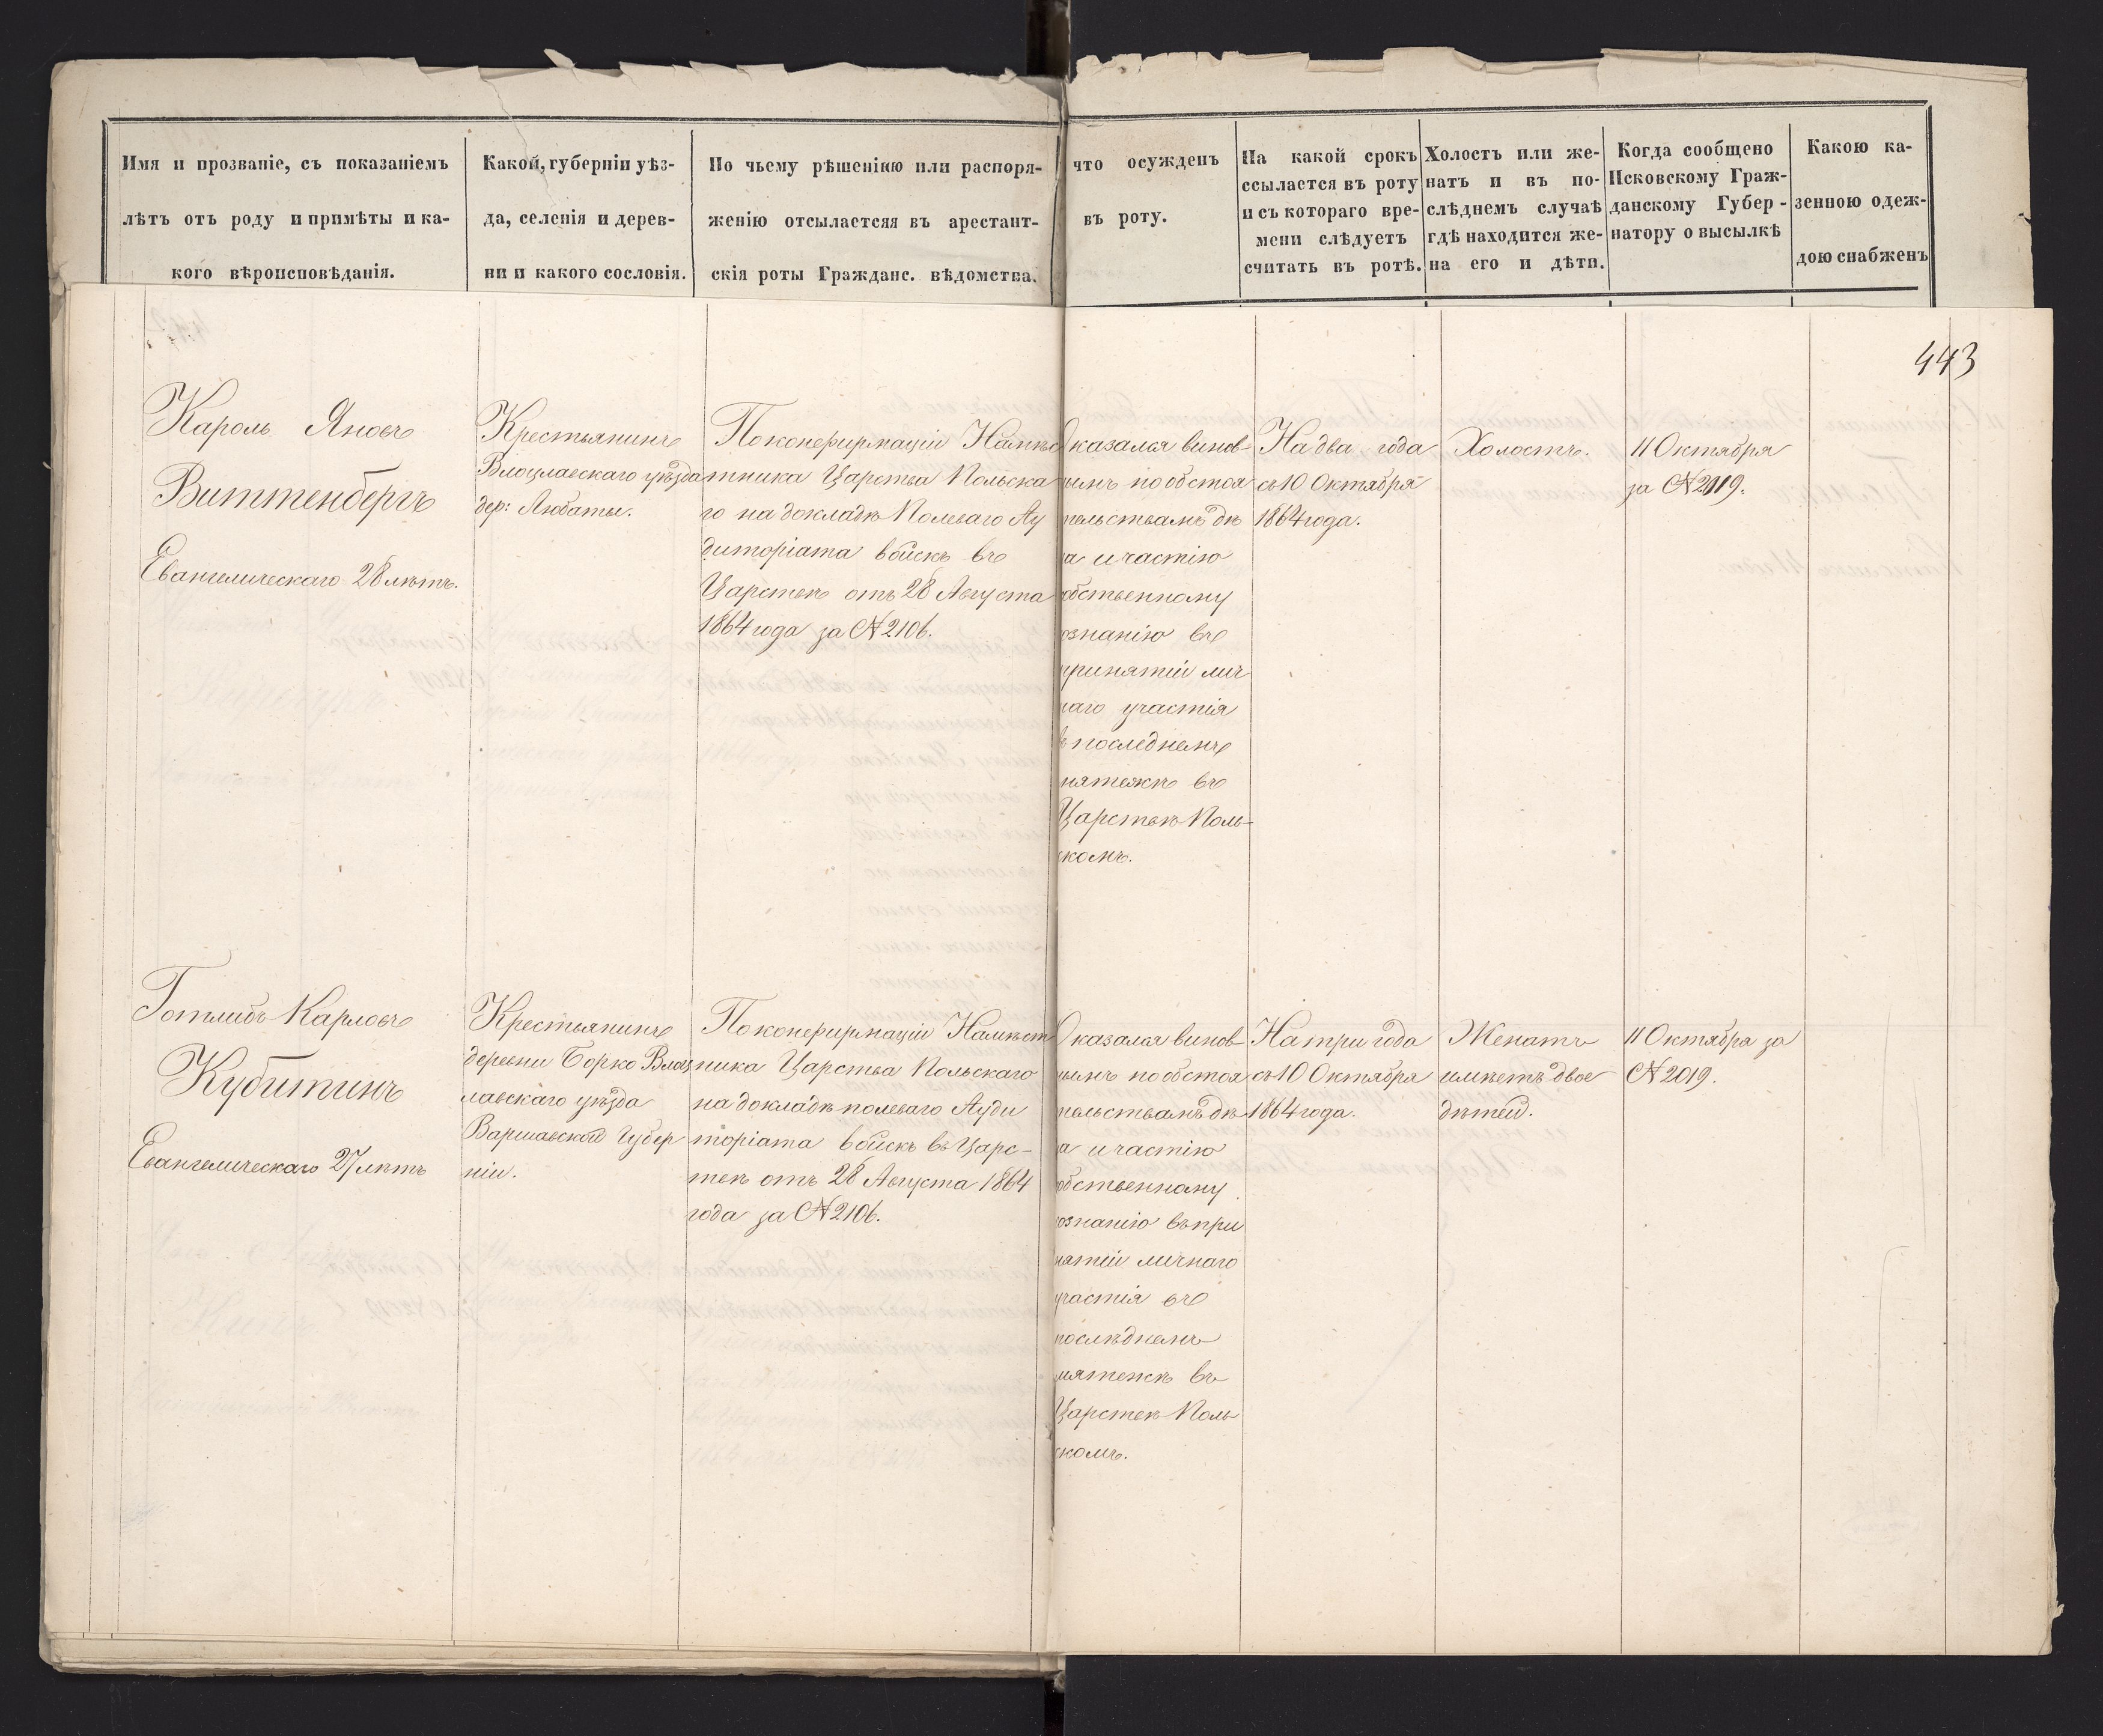 Имя и прозваніе, съ показаніемъ
лѣтъ отъ роду и примѣты и ка-
кого вѣроисповѣданія.
Какой, губерніи уѣз-
да, селенія и дерев-
ни и какого сословія.
По чьему рѣшенію или распоря-
женію отсылаетсяя въ арестант-
скія роты Гражданс. вѣдомства.
что осужденъ
въ роту.
На какой срокъ
ссылается въ роту
и съ котораго вре-
мени слѣдуетъ
считать въ ротѣ.
Холостъ или же-
натъ и въ по-
слѣднемъ случаѣ
гдѣ находится же-
на его и дѣти.
Когда сообщено
Псковскому Граж-
данскому Губер-
натору о высылкѣ
Какою ка-
зенною одеж-
дою снабженъ
443
Кароль Яновъ
Виттенбергъ
Евангелическаго 28 лѣтъ.
Крестьянинъ
Влоцлавскаго уѣзда
дер: Любаты.
По конфирмаціи Намѣс
тника Царства Польска
го на докладѣ Полеваго Ау
диторіата войскъ въ
Царствѣ отъ 28 Августа
1864 года за № 2106.
Оказался винов-
нымъ по обстоя
тельствамъ дѣ
а и частію
обственному
ознанію въ
принятіи лич
наго участія
в последнемъ
мятежѣ въ
Царствѣ Поль-
скомъ.
На два года
съ 10 Октября
1864 года.
Холостъ.
11 Октября
за № 2019.
Готлибъ Карловъ
Кубитинъ
Евангелическаго 27 лѣтъ
Крестьянинъ
деревни Борко Влоц
лавскаго уѣзда
Варшавской Губер
ніи.
По конфирмаціи Намѣст
ника Царства Польскаго
на докладѣ полеваго Ауди
торіата войскъ въ Царс-
твѣ отъ 28 Августа 1864
года за № 2106.
Оказался винов-
нымъ по обстоя
тельствамъ дѣ
а и частію
обственному
ознанію въ при
нятіи личнаго
участія въ
послѣднемъ
мятежѣ въ
Царствѣ Поль
скомъ.
На три года
съ 10 Октября
1864 года.
Женатъ
имѣетъ двое
дѣтей.
11 Октября за
№ 2019.